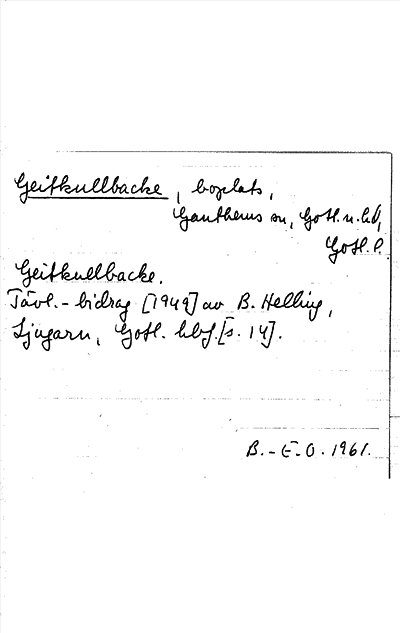 Geitkullbacke, boplats,
Ganthems sn, Gotl. n. hd,
Gotl. l.
Geitkullbacke.
Tävl.-bidrag [1949] av B. Helling,
Ljugarn, Gotl. hbf. [s. 14].
B.-E.O. 1961.